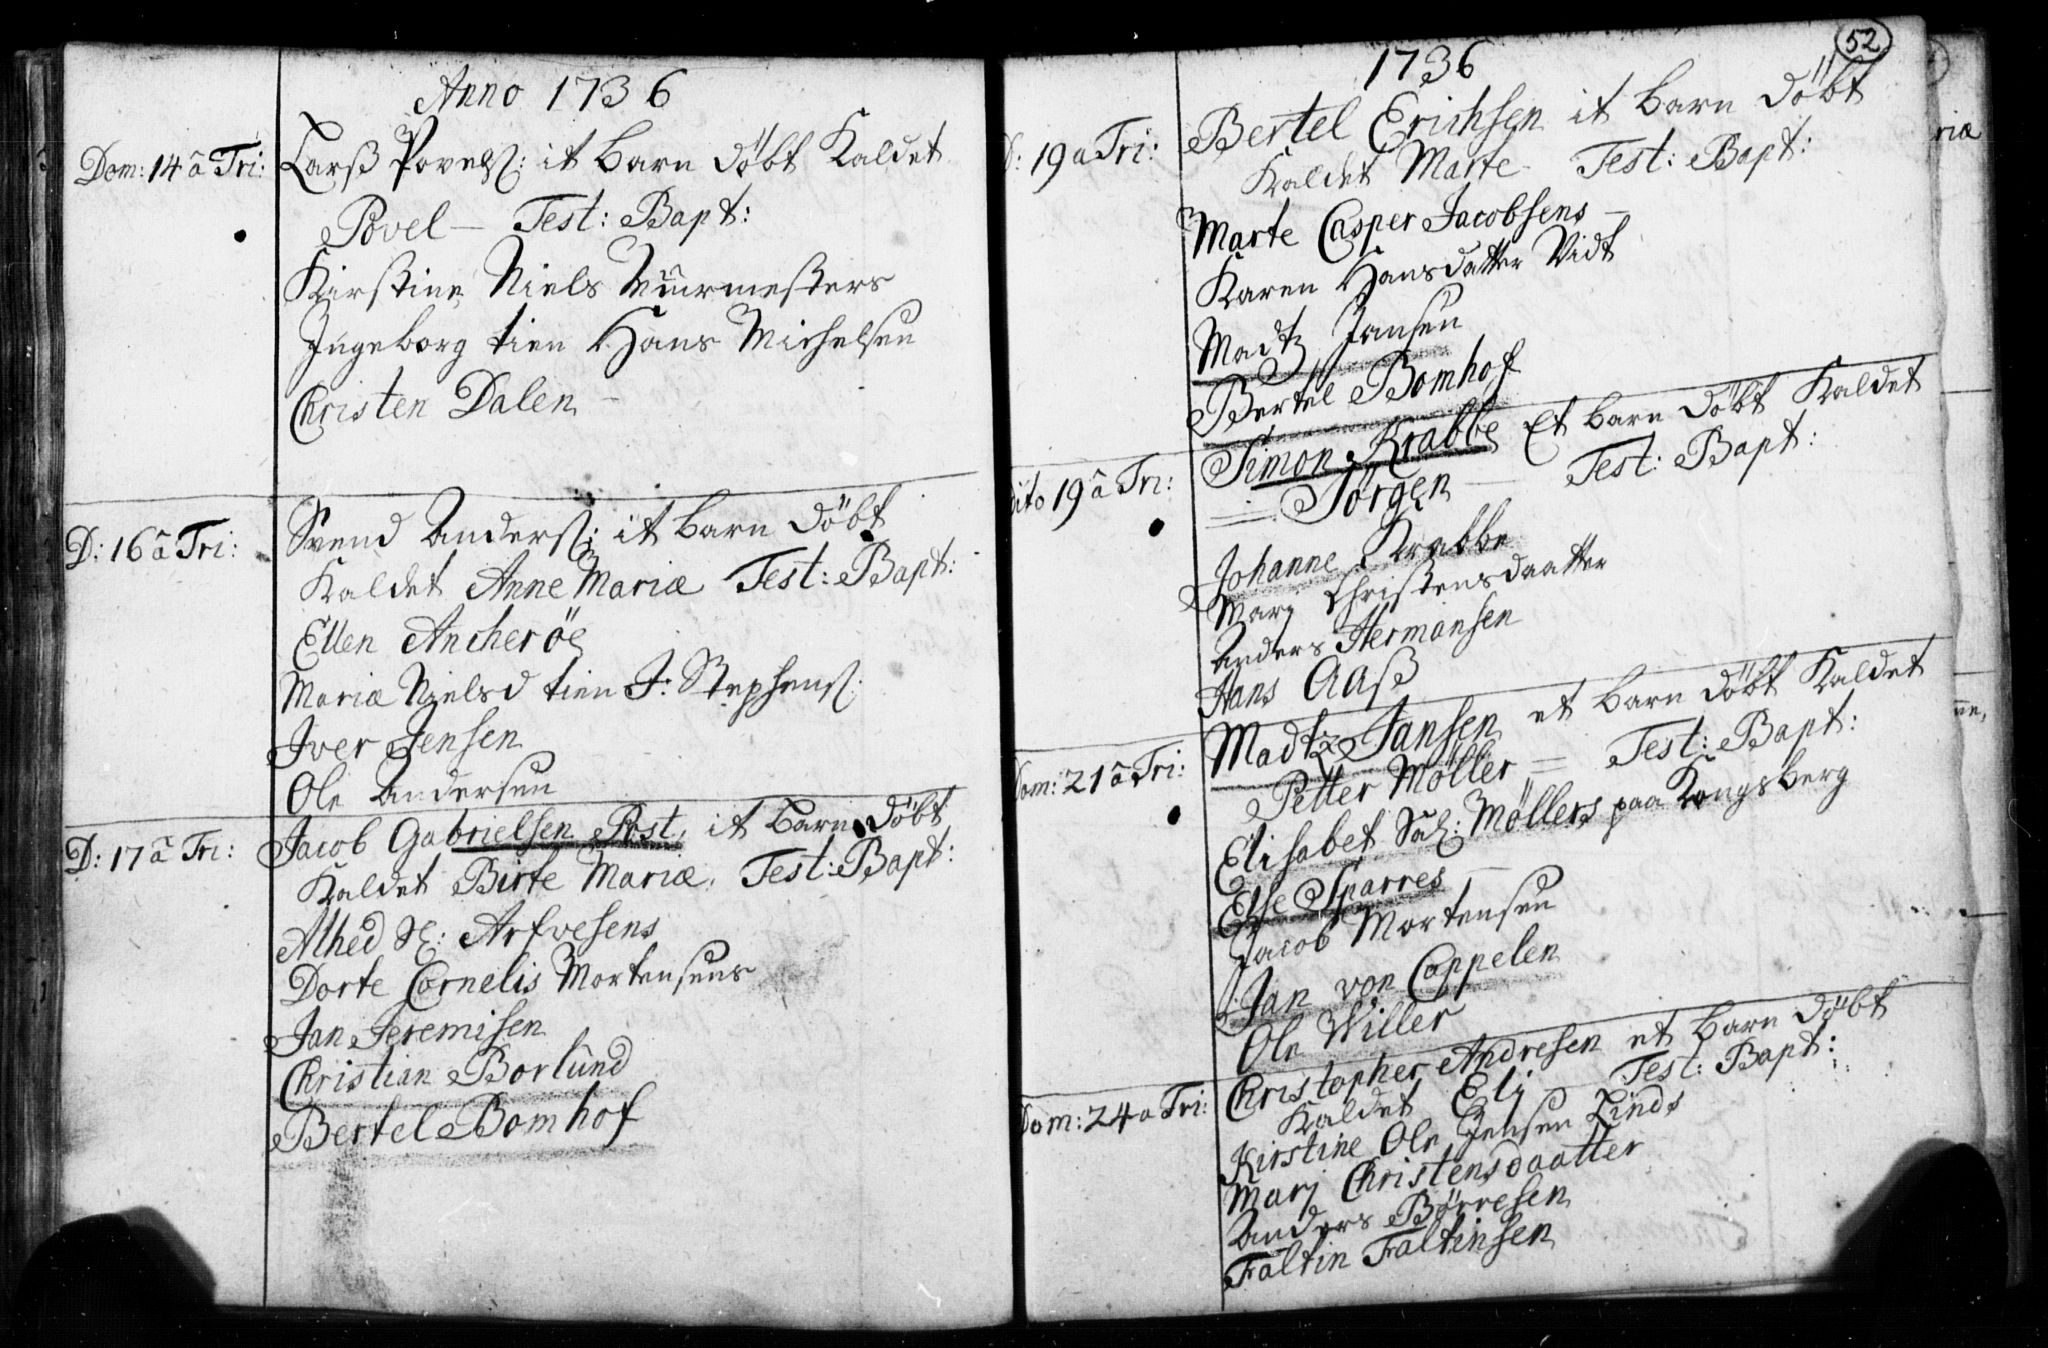 Anno 1736
Dom: 14 â Tri: Larß Povels: it barn döbt Kaldet
Povel — Test: Bapt:
Kirstine Niels Muurmesters
Ingeborg tien Hans Michelsen
Christen Dalen
D: 16 â Tri: Svend Anders: it barn döbt
Kaldet Anne Mariæ Test: Bapt:
Ellen Ancheröe
Mariæ Nielsd tien J: Stephens:
Iver Jensen
Ole Andersen
D: 17 â Tri: Jacob Gabrielsen Post, it barn döbt
Kaldet Birte Mariæ, Test: Bapt:
Alhed Sl: Arfvesens
Dorte Cornelis Mortensens
Jan Jeremisen
Christian Borlund
Bertel Bomhof
52
1736
D: 19 a Tri: Bertel Erichsen it barn döbt
Kaldet Marte Test: Bapt:
Marte Casper Jacobsens —
Karen Hansdatter Vidt
Madtz Jansen
Bertel Bomhof
dito 19 â Tri: Simon Krabbe Et barn döbt Kaldet
Jörgen — Test: Bapt:
Johanne Krabbe
Marj Christensdaatter
Anders Hermansen
Hans Aaß
Dom: 21 â Tri: Madtz Jansen et barn döbt Kaldet
Petter Möller = Test: Bapt:
Elisabet Sal: Möllers paa Kongsberg
Else Sparres —
Jacob Mortensen
Jan von Cappelen
Ole Willer
Dom: 24 a Tri: Christopher Andresen et barn döbt
Kaldet Eli Test: Bapt:
Kirstine Ole Jensen Linds
Marj Christensdaatter
Anders Börresen
Faltin Faltinsen
riæ
ne,